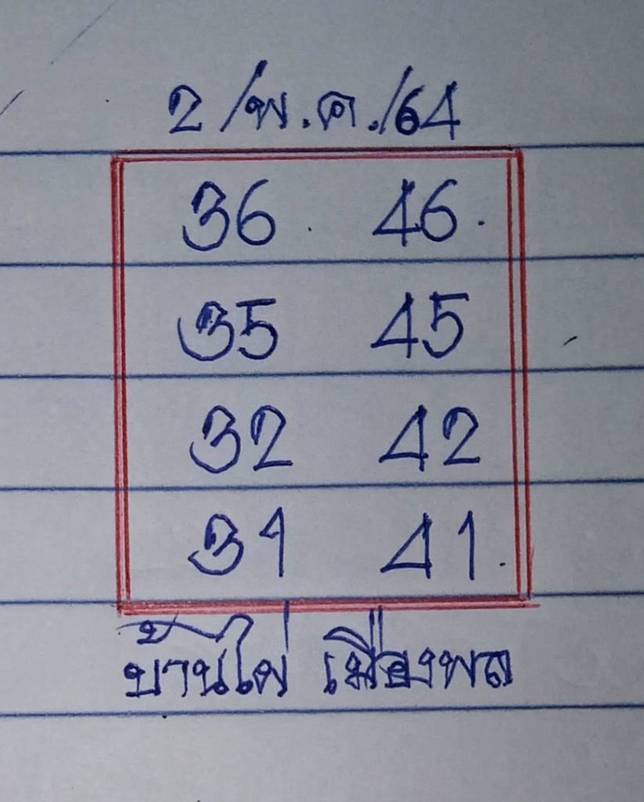 2/พ.ค./64
36 46
35 45
32 42
31 41
บ้านไผ่ เมืองพล